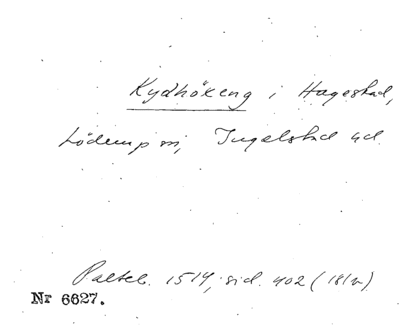 Kydhökeng i Hagestad,
Löderup sn, Ingelstad hd.
Palteb. 1514, sid. 402 (181v)
Nr 6627.